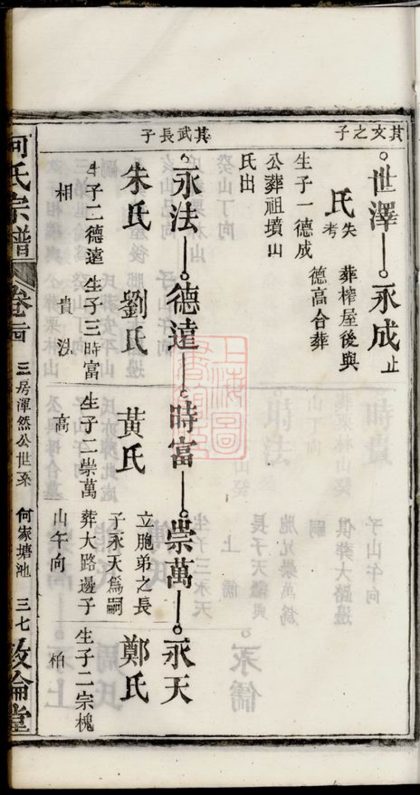 其文之子
世澤 永成 止
氏 失考 葬榨屋後與
德高合葬
生子一德成
公葬祖墳山
氏出
其武長子
永法 德達 時富 崇萬 永天
朱氏 劉氏 黃氏 立胞弟之長 鄭氏
子永天為嗣
生子二德達 生子三時富 生子二崇萬 葬大路邊子 生子二宗槐
相 貴 高 山午向 柏
何氏宗譜 卷 三房渾然公世系 何家塘池 三七 敦倫堂
上海圖